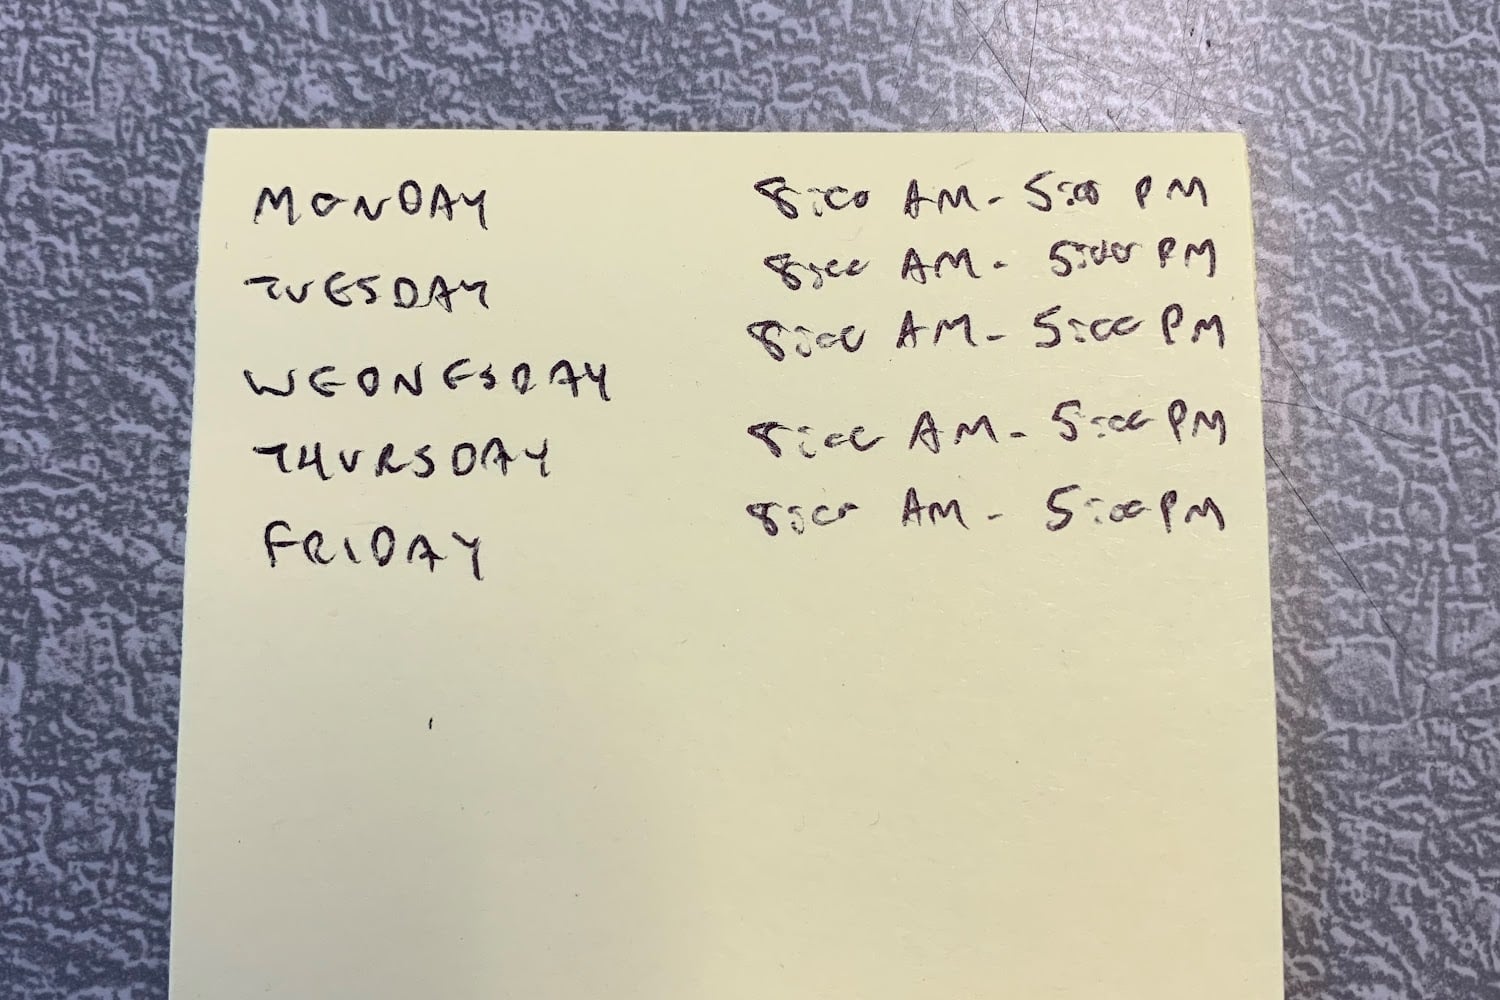 MONDAY 8:00 AM - 5:00 PM
TUESDAY 8:00 AM - 5:00 PM
WEDNESDAY 8:00 AM - 5:00 PM
THURSDAY 8:00 AM - 5:00 PM
FRIDAY 8:00 AM - 5:00 PM